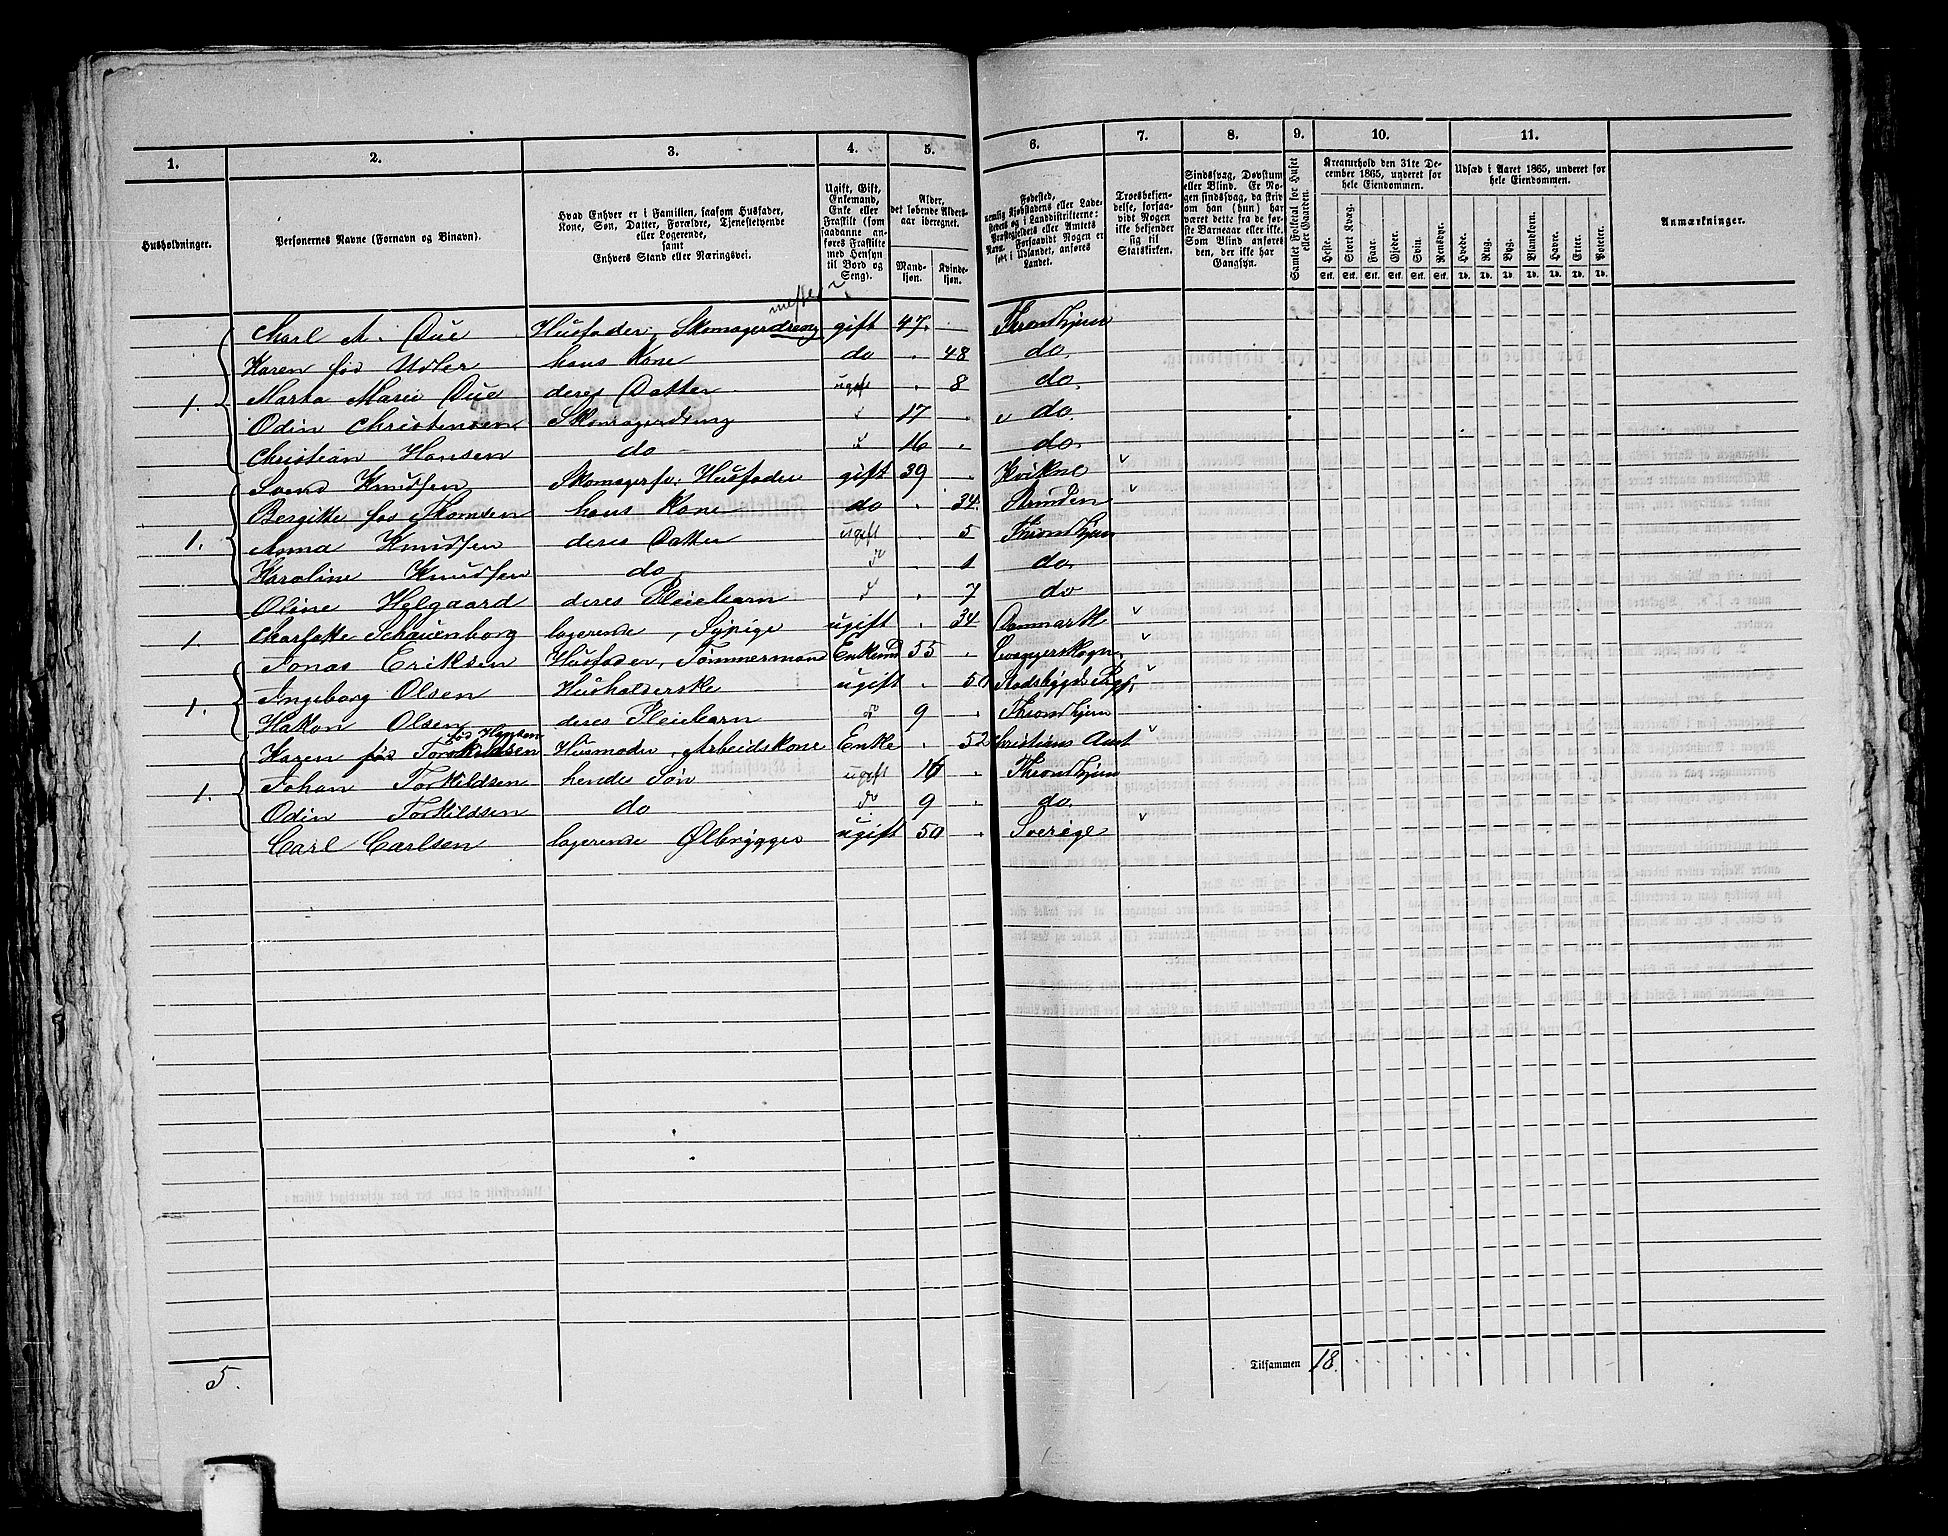 1. 2. 3. 4. 5. 6. 7. 8. 9. 10. 11.
Husholdninger.
Personernes Navne (Fornavn og Binavn).
Hvad Enhver er i Familien, saasom Husfader, Kone, Søn, Datter, Forældre, Tjenestetyende eller Logerende, samt Enhvers Stand eller Næringsvei.
Ugift, Gift, Enkemand, Enke eller Fraskilt (som saadanne anføres Fraskilte med Hensyn til Bord og Seng).
Alder, det løbende Aldersaar iberegnet.
Mandkjøn. Kvindekjøn.
Fødested, nemlig Kjøbstadens eller Ladestedets og i Landdistrikterne: Præstegjeldets eller Amtets Navn. Forsaavidt Nogen er født i Udlandet, anføres Landet.
Troesbekjendelse, forsaavidt Nogen ikke bekjender sig til Statskirken.
Sindssvag, Døvstum eller Blind. Er Nogen sindssvag, da skrives om han (hun) har været dette fra de første Barneaar eller ikke. Som Blind anføres den, der ikke har Gangsyn.
Samlet Folketal for Huset eller Gaarden.
Kreaturhold den 31te December 1865, underet for hele Eiendommen.
Heste. Stort Kvæg. Faar. Gjeder. Svin. Rensdyr.
Stk. Stk. Stk. Stk. Stk. Stk.
Udsæd i Aaret 1865, underet for hele Eiendommen.
Hvede. Rug. Byg. Blandkorn. Havre. Erter. Poteter.
Td. Td. Td. Td. Td. Td. Td.
Anmærkninger.
Carl A. Due Husfader, Skomagerdreng mester gift 47. Throndhjem
Karen fød Udler hans Kone do . 48 do.
1. Marta Marei Due deres Datter ugift . 8 do.
Odin Christensen Skomagerdreng 17 . do.
Christian Hansen do 16 . do.
Svend Knudsen Skomagersv: Husfader gift 39 . Kvikne
Bergitte fød Thomsen hans Kone do . 34. Strinden
1. Anna Knudsen deres Datter ugift . 5 Throndhjem
Karoline Knudsen do do . 1 do.
Oline Helgaard deres Pleiebarn . 7 do
1. Charlotte Schauenborg logerende, Sypige ugift . 34 Danmark
Jonas Eriksen Husfader, Tømmermand Enkemd 55 .
1. Ingeborg Olsen Husholderske ugift . 50 Stadsbygdens Pgj.
Hakon Olsen deres Pleiebarn do 9 . Throndhjem
Karen fød Torkildsen fød Hansen Husmoder, Arbeidskone Enke . 52 Christians Amt
1. Johan Torkildsen hendes Søn ugift 16 . Throndhjem
Odin Torkildsen do do 9 . do.
Carl Carlsen logerende Ølbrygger ugift 50 . Sverige
5. Tilsammen 18.